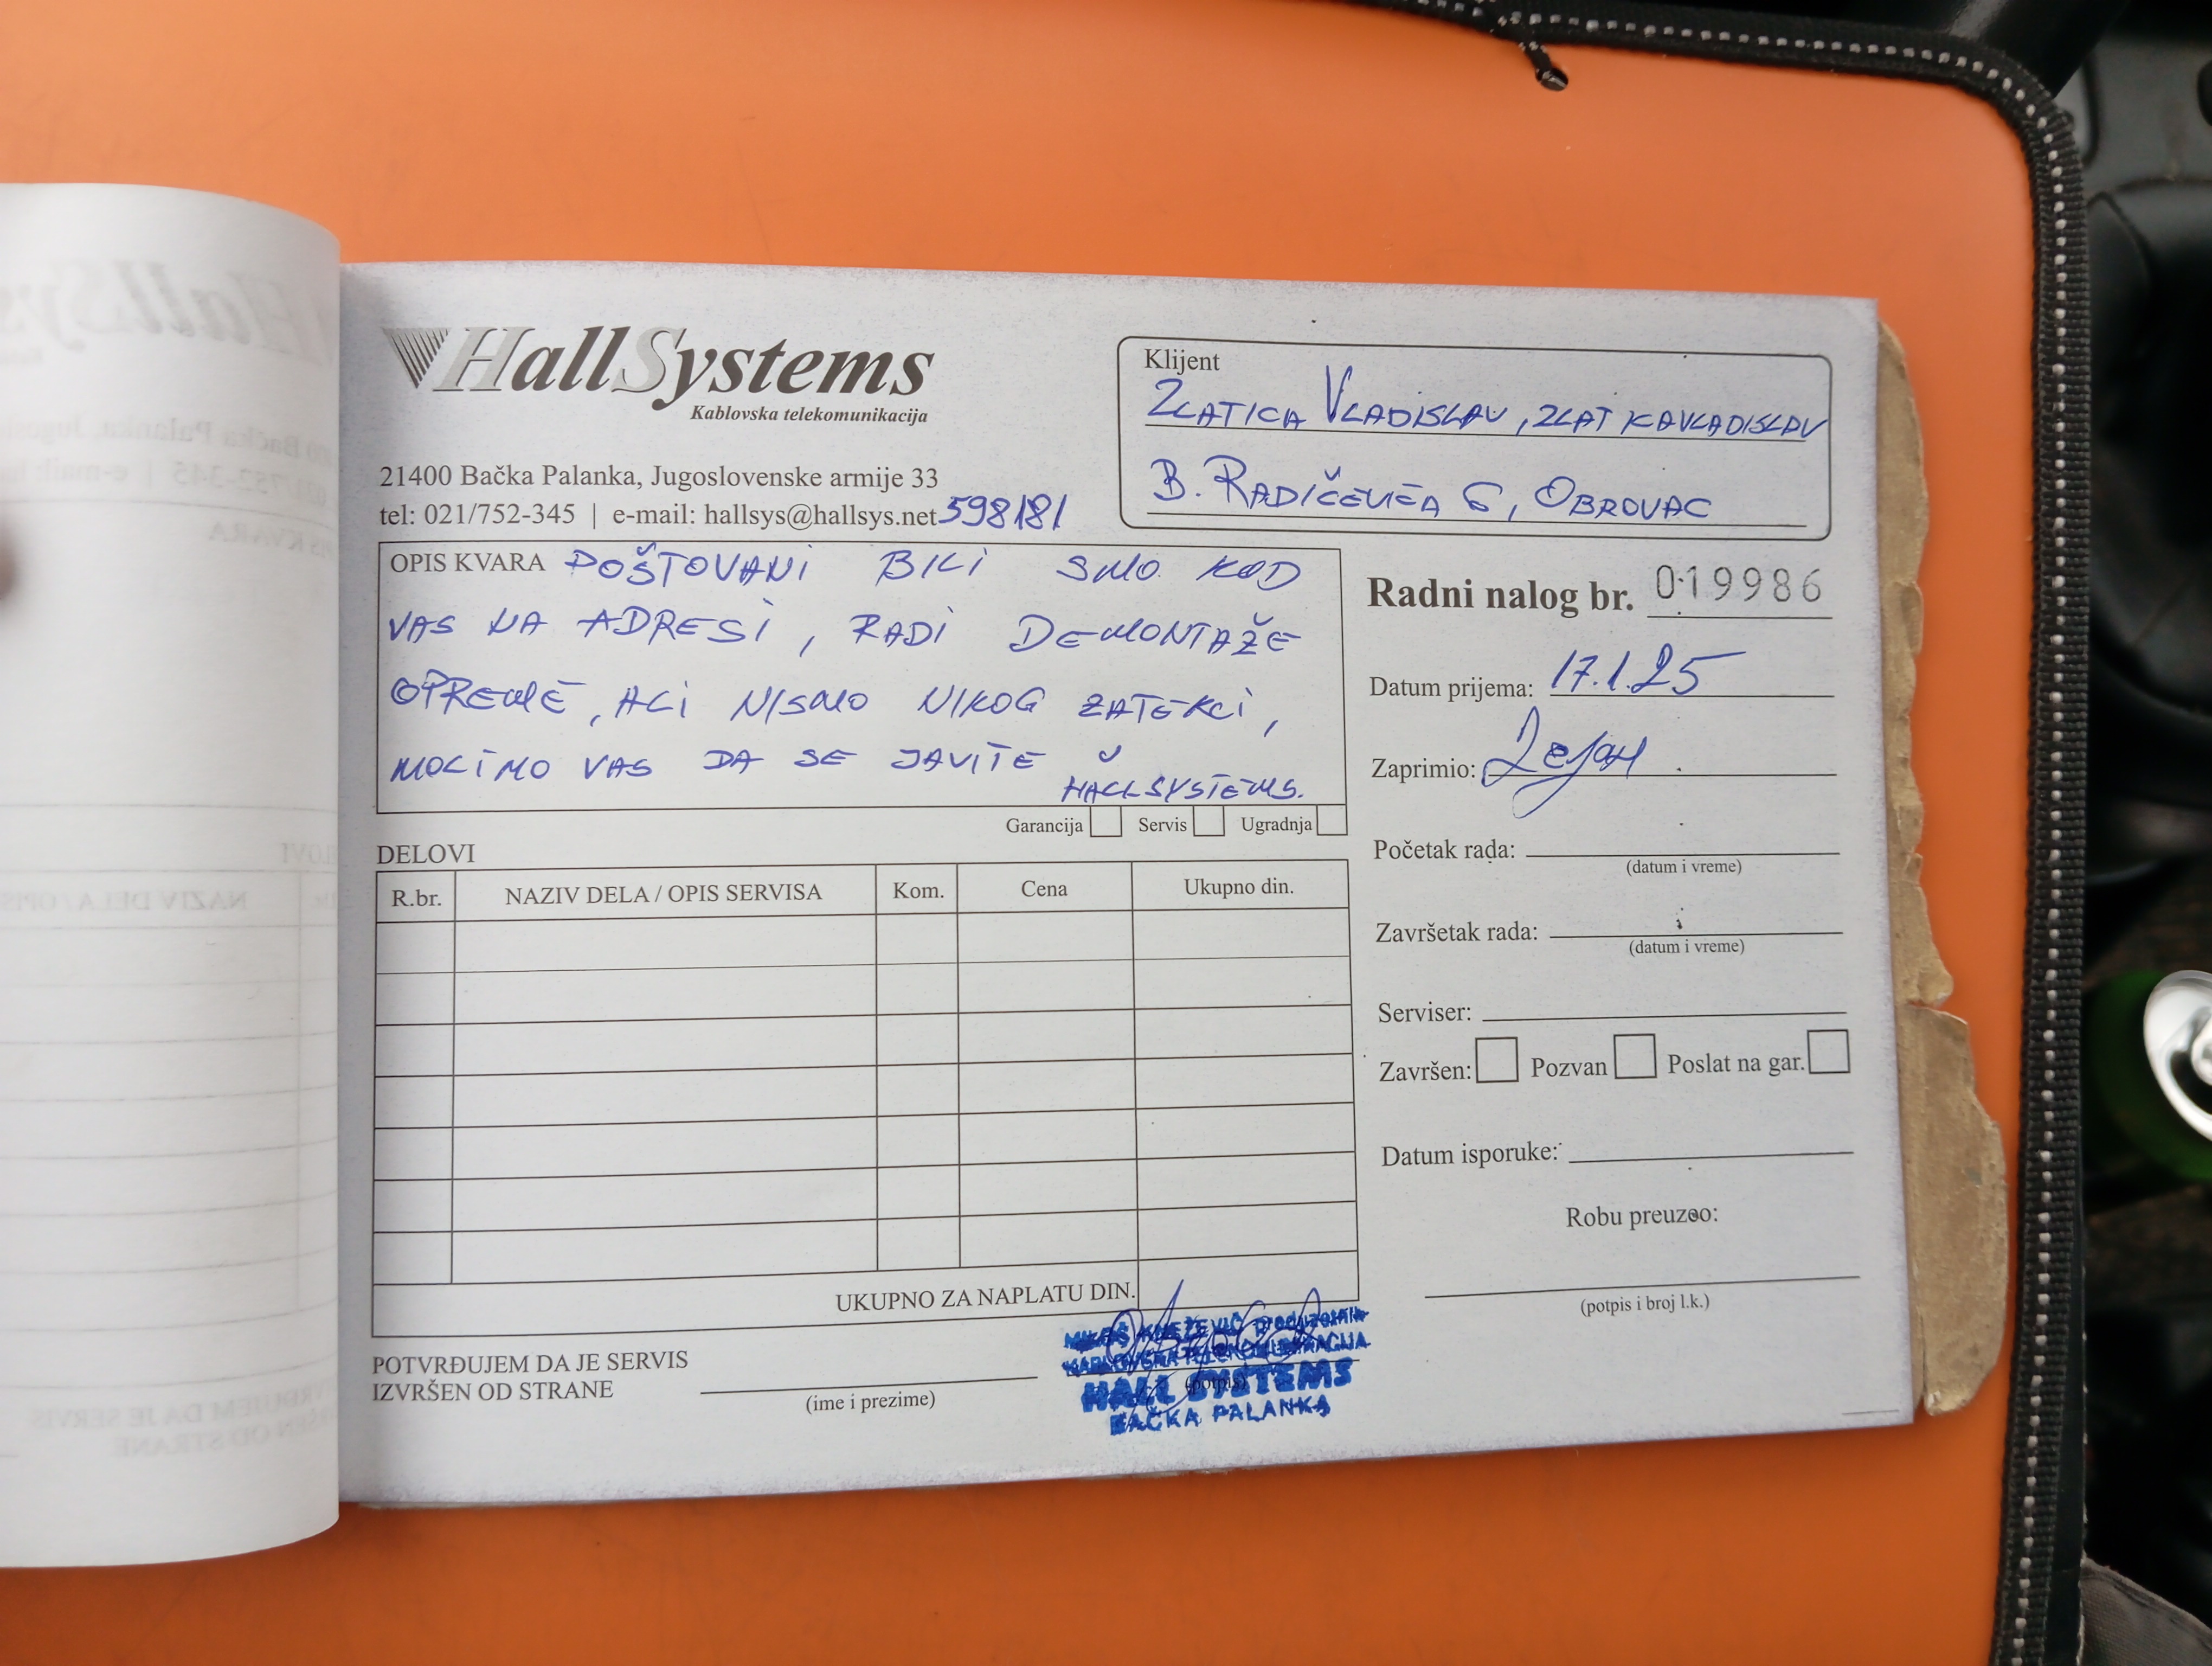 HallSystems
Kablovska telekomunikacija
21400 Bačka Palanka, Jugoslovenske armije 33
tel: 021/752-345 | e-mail: hallsys@hallsys.net 598181
Klijent
ZLATICA VLADISLAV, ZLATKA VLADISLAV
B. RADIČEVIĆA 6, OBROVAC
OPIS KVARA POŠTOVANI BILI SMO KOD
VAS NA ADRESI, RADI DEMONTAŽE
OPREME, ALI NISMO NIKOG ZATEKLI,
MOLIMO VAS DA SE JAVITE U
HALLSYSTEMS.
Garancija Servis Ugradnja
Radni nalog br. 019986
Datum prijema: 17.1.25
Zaprimio: Dejan
Početak rada:
(datum i vreme)
Završetak rada:
(datum i vreme)
Serviser:
Završen: Pozvan Poslat na gar.
Datum isporuke:
Robu preuzeo:
(potpis i broj l.k.)
DELOVI
R.br. NAZIV DELA / OPIS SERVISA Kom. Cena Ukupno din.
UKUPNO ZA NAPLATU DIN.
POTVRĐUJEM DA JE SERVIS
IZVRŠEN OD STRANE
(ime i prezime)
(potpis)
MILOŠ KNEŽEVIĆ preduzetnik
KABLOVSKA TELEKOMUNIKACIJA
HALL SYSTEMS
BAČKA PALANKA